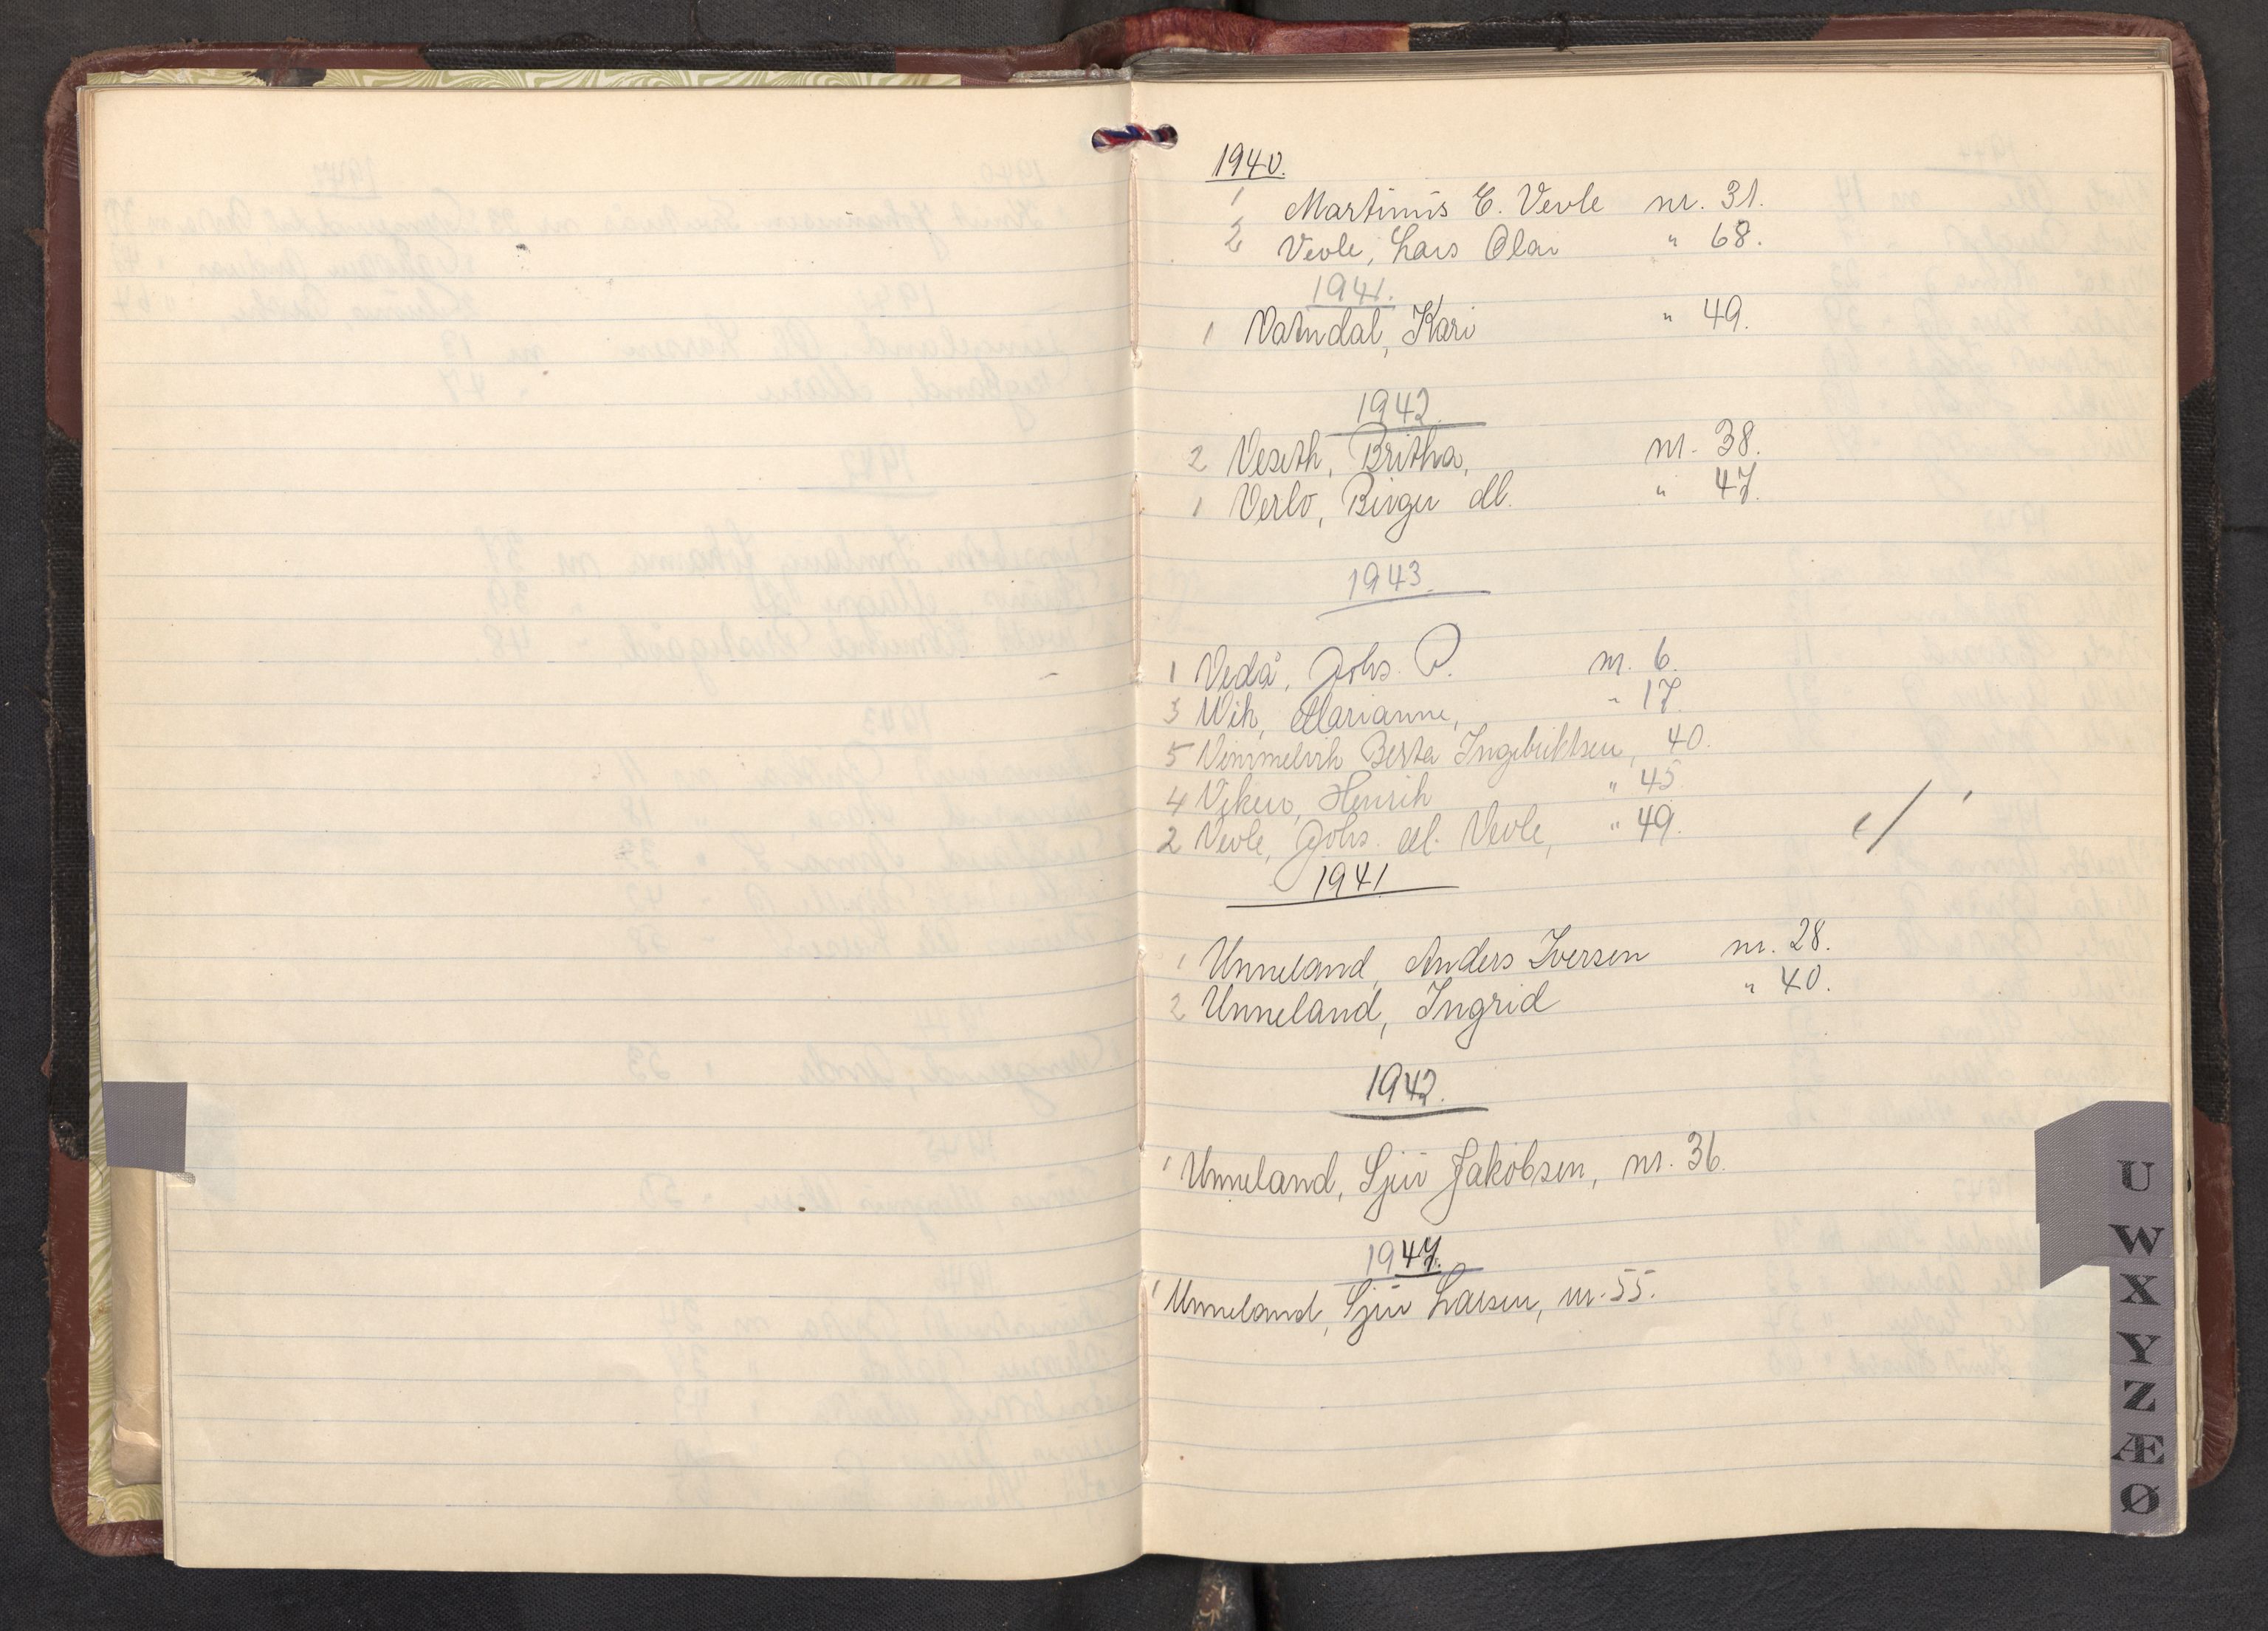 1940.
1 Martinus E. Vevle nr. 31.
2 Vevle, Lars Olai " 68.
1941.
1 Vatndal, Kari " 49.
1942.
2 Veseth, Britha, nr. 38.
1 Verlo, Birger M. " 47.
1943.
1 Vedå, Johs. P. nr. 6.
3 Wik, Marianne, " 17.
5 Vemmelvik Berta Ingebriktsen, 40.
4 Henrik " 45
2 Vevle, Johs. M. Vevle, " 49.
1941
1 Unneland, Anders Iversen nr. 28.
2 Unneland, Ingrid " 40.
1942.
1 Unneland, Sjur Jakobsen, nr. 36.
1947.
1 Unneland, Sjur Larsen, nr. 55.
U
W
X
Y
Z
Æ
Ø